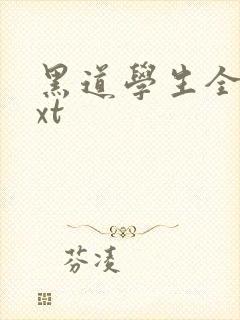 黑道學生全
xt
芬凌